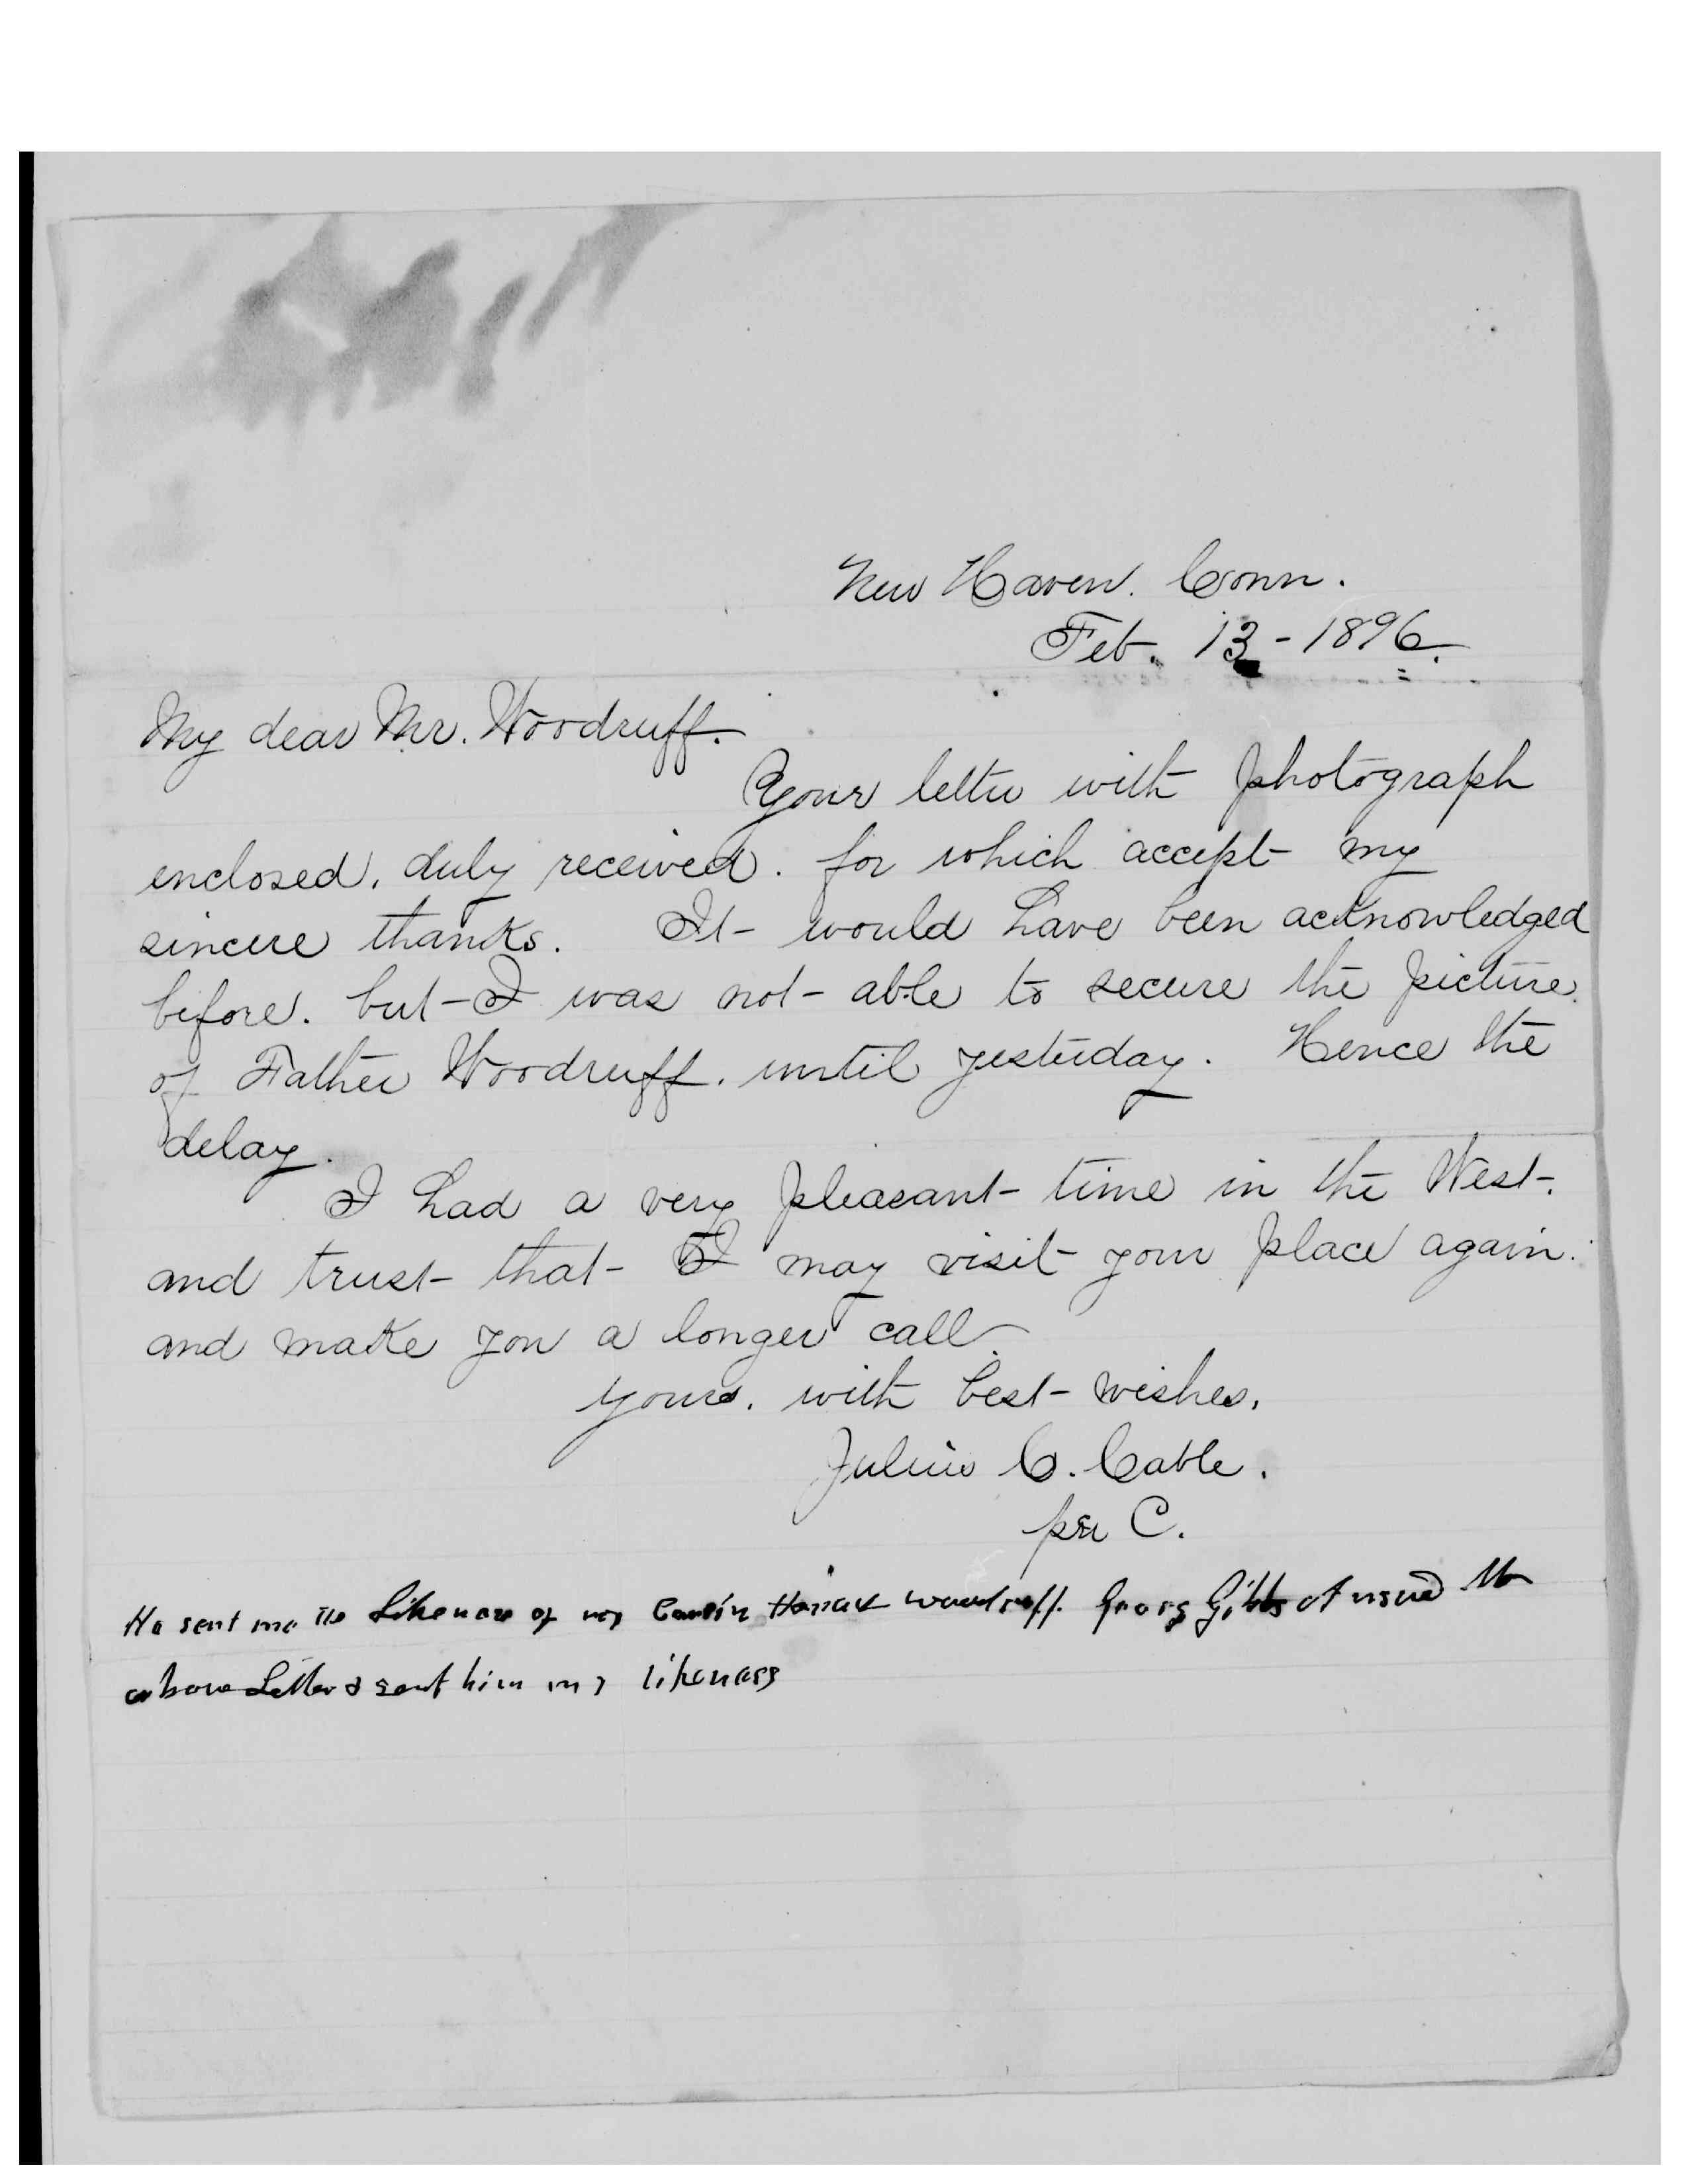 New Haven. Conn.
Feb. 13 - 1896.
My dear Mr. Woodruff.
Your letter with photograph
enclosed, duly received. for which accept my
sincere thanks. It would have been acknowledged
before. but I was not able to secure the picture
of Father Woodruff. until yesterday. Hence the
delay.
I had a very pleasant time in the West.
and trust that I may visit your place again.
and make you a longer call.
Yours. with best wishes.
Julius C. Cable.
per C.
He sent me the Likeness of my Cousin woodruff. Georg Gibbs the
above Letter & sent him my likeness